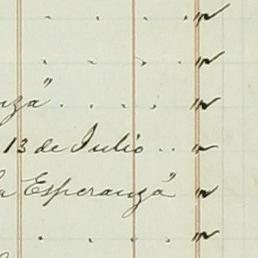 nza" . . . .
13 de Julio . .
a Esperanza"